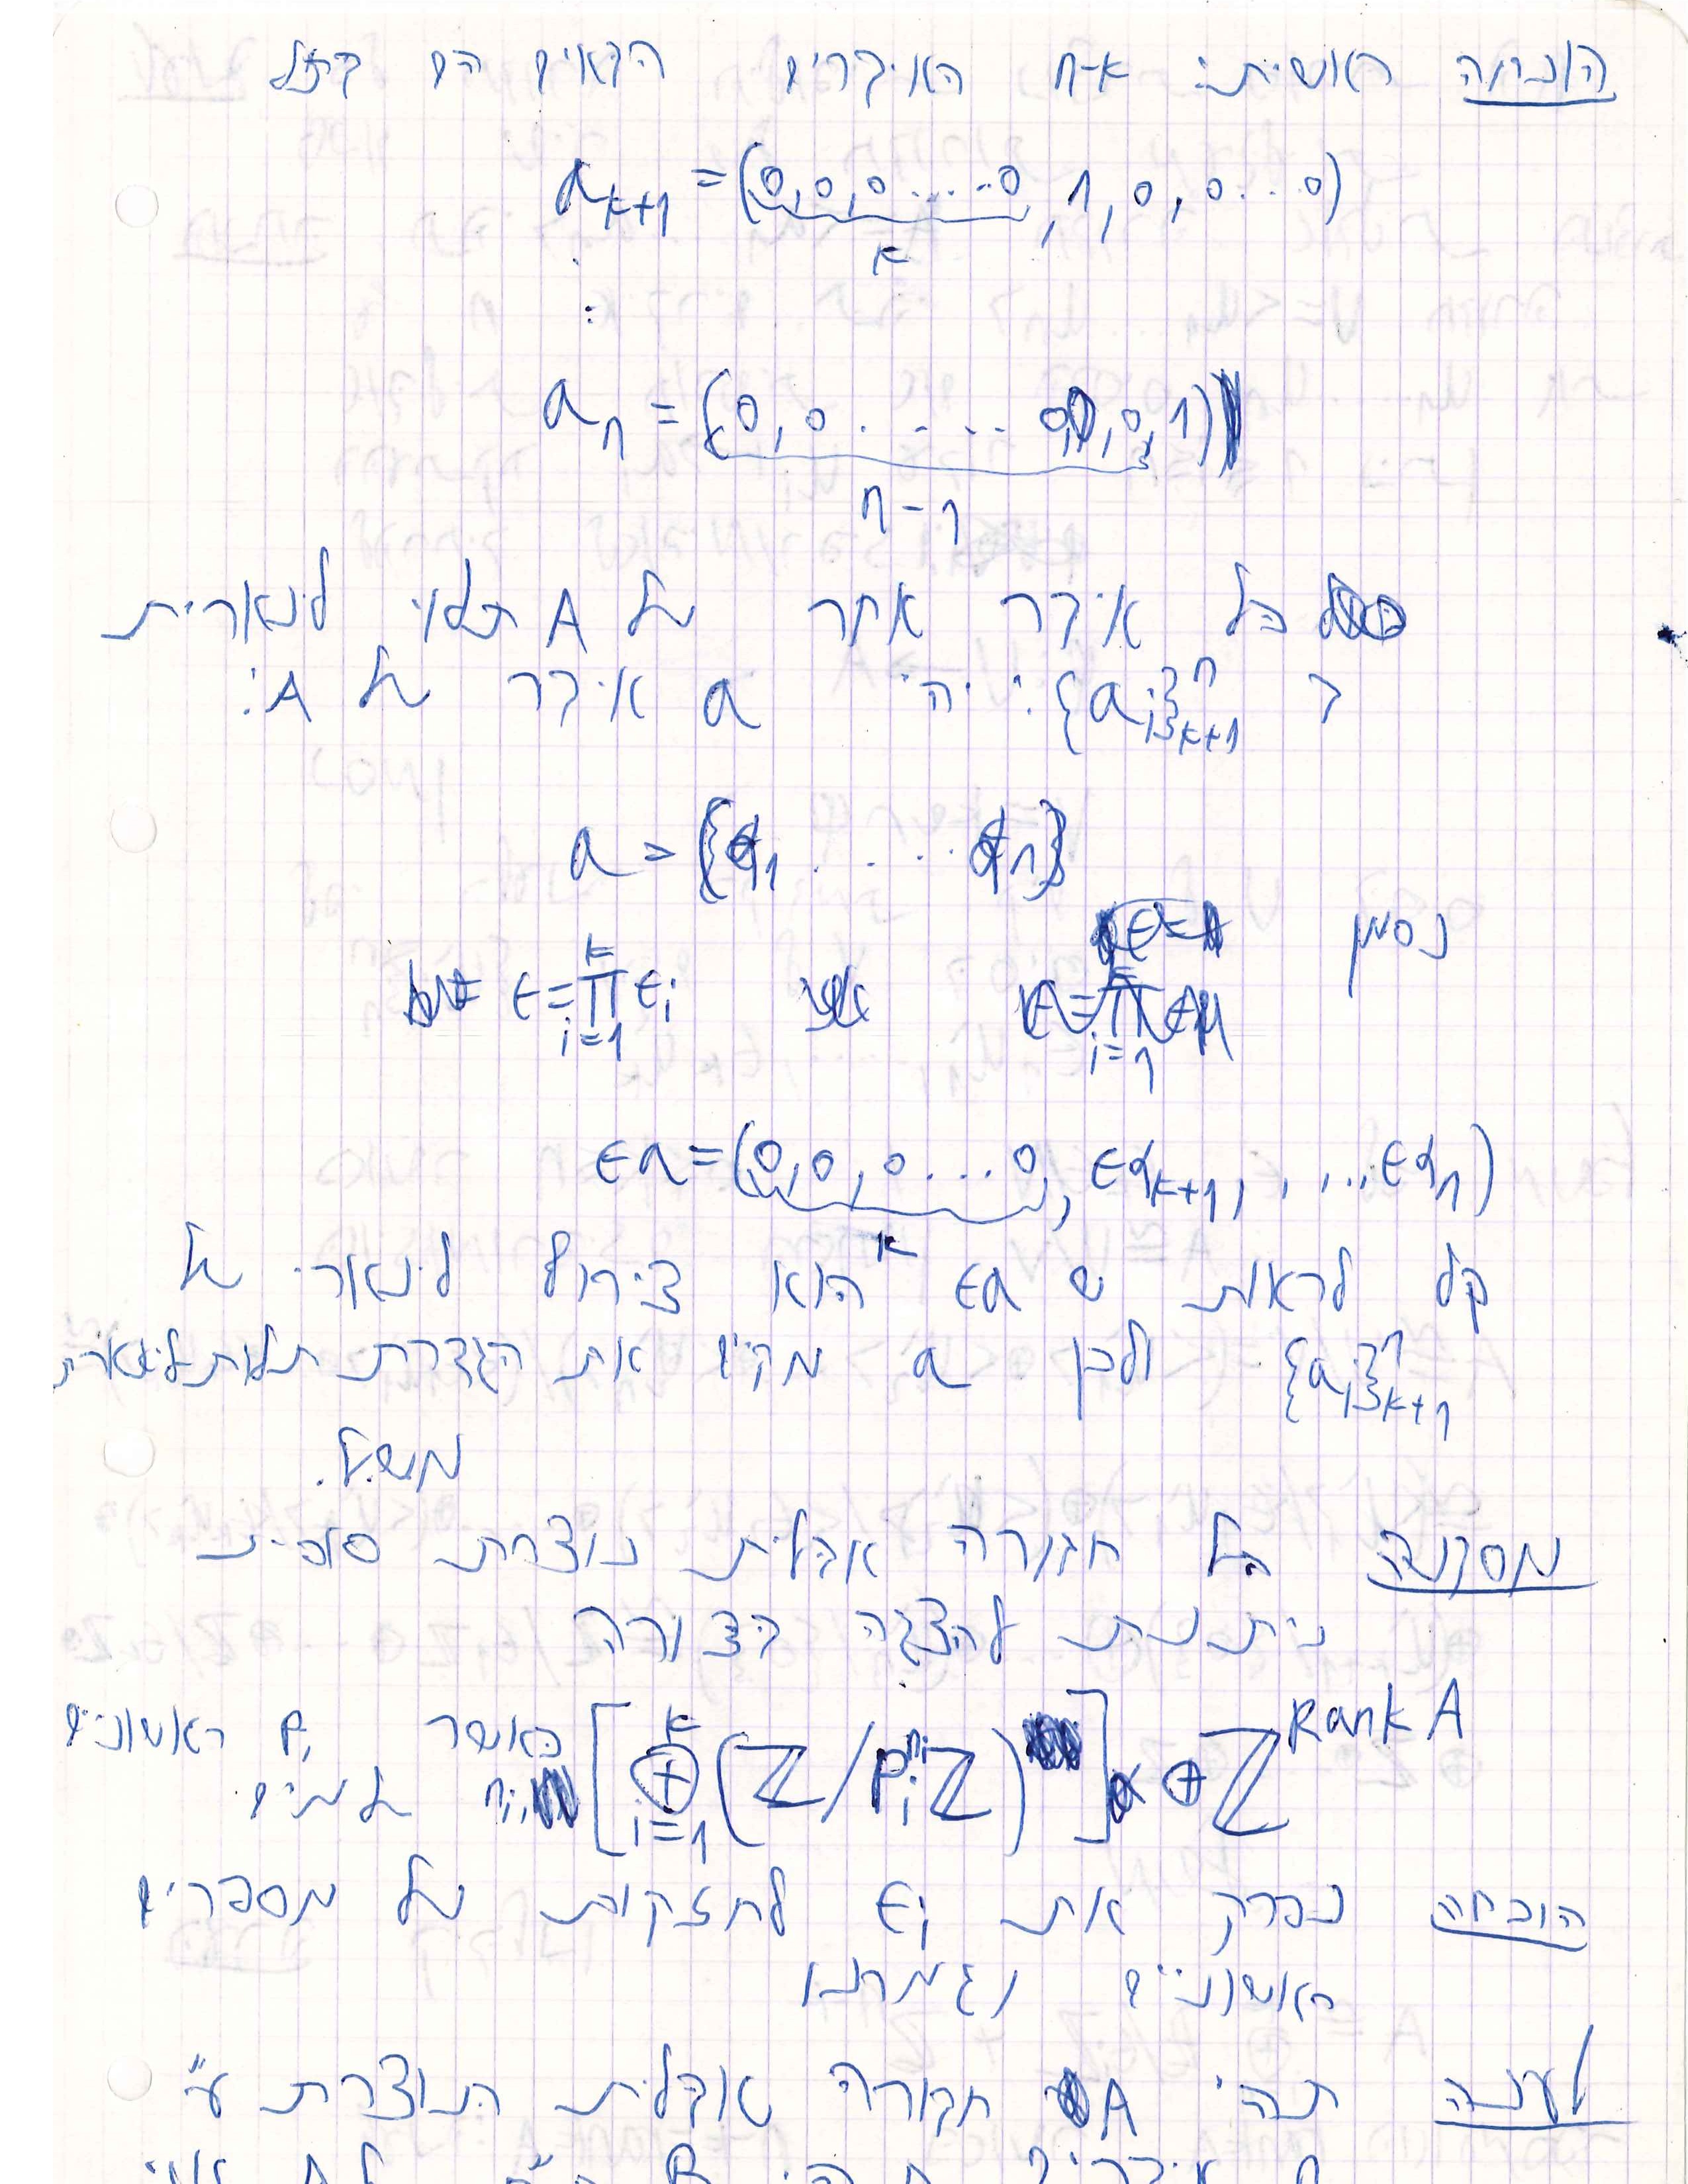 הוכחה ראשית: א-n האיברים הבאים הם בת"ל
a_{k+1} = (0,0,0.....0,1,0,0...0)
k
:
a_n = (0,0.....0,0,1)
n-1
כל איבר אחר של A תלוי לינארית
ב {a_i}^n_{k+1}: יהי a איבר של A:
a = {α_1.....α_n}
נסמן
ε = ∏_{i=1}^{k} ε_i אז
εa = (0,0,0...0, εα_{k+1},,...εα_n)
k
קל לראות ש εa הוא צירוף לינארי של
{a_i}^n_{k+1} ולכן a מקיים את הגדרת תלות לינארית
מש"ל.
מסקנה כל חבורה אבלית נוצרת סופית
ניתנת להצגה בצורה
[⊕_{i=1}^{k} (Z/p_i^{n_i}Z)] ⊕ Z^{Rank A} כאשר p_i ראשוניים
n_i שלמים
הוכחה נפרק את ε_i לחזקות של מספרים
ראשוניים וגמרנו
טענה תהי A חבורה אבלית הנוצרת ע"י